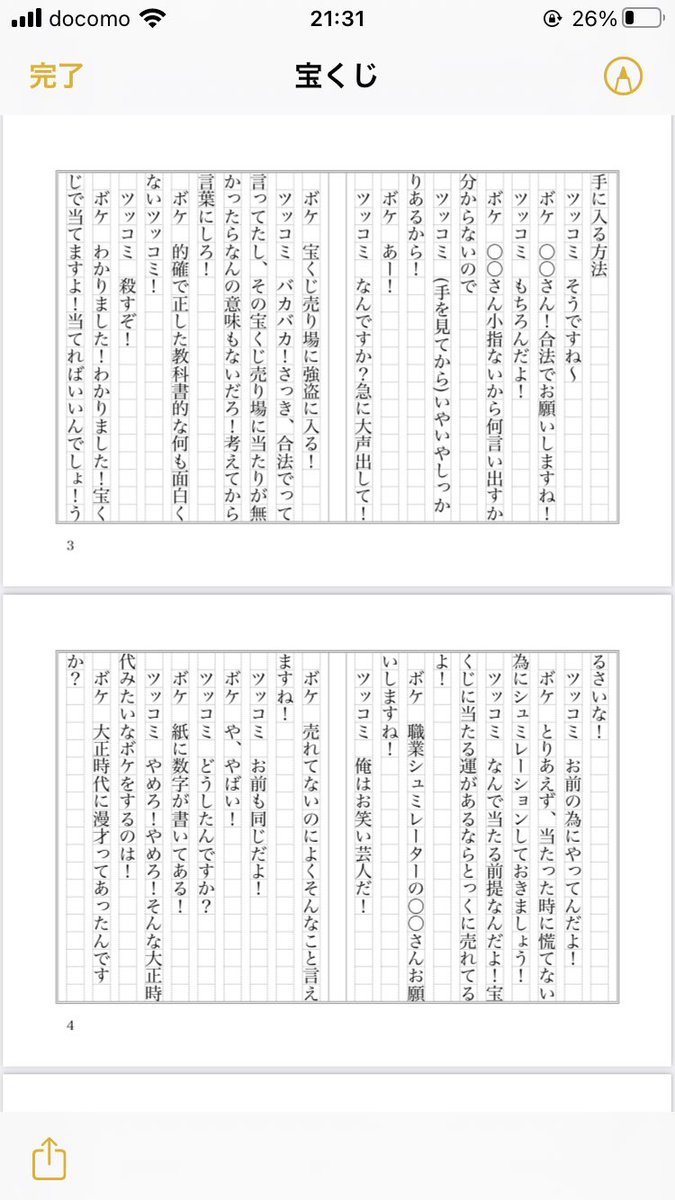 docomo 21:31 26%
完了 宝くじ
手に入る方法
ツッコミ そうですね〜
ボケ 〇〇さん!合法でお願いしますね!
ツッコミ もちろんだよ!
ボケ 〇〇さん小指ないから何言い出すか
分からないので
ツッコミ (手を見てから)いやいやしっか
りあるから!
ボケ あー!
ツッコミ なんですか?急に大声出して!
ボケ 宝くじ売り場に強盗に入る!
ツッコミ バカバカ!さっき、合法でって
言ってたし、その宝くじ売り場に当たりが無
かったらなんの意味もないだろ!考えてから
言葉にしろ!
ボケ 的確で正した教科書的な何も面白く
ないツッコミ!
ツッコミ 殺すぞ!
ボケ わかりました!わかりました!宝く
じで当てますよ!当てればいいんでしょ!う
3
るさいな!
ツッコミ お前の為にやってんだよ!
ボケ とりあえず、当たった時に慌てない
為にシュミレーションしておきましょう!
ツッコミ なんで当たる前提なんだよ!宝
くじに当たる運があるならとっくに売れてる
よ!
ボケ 職業シュミレーターの〇〇さんお願
いしますね!
ツッコミ 俺はお笑い芸人だ!
ボケ 売れてないのによくそんなこと言え
ますね!
ツッコミ お前も同じだよ!
ボケ や、やばい!
ツッコミ どうしたんですか?
ボケ 紙に数字が書いてある!
ツッコミ やめろ!やめろ!そんな大正時
代みたいなボケをするのは!
ボケ 大正時代に漫才ってあったんです
か?
4